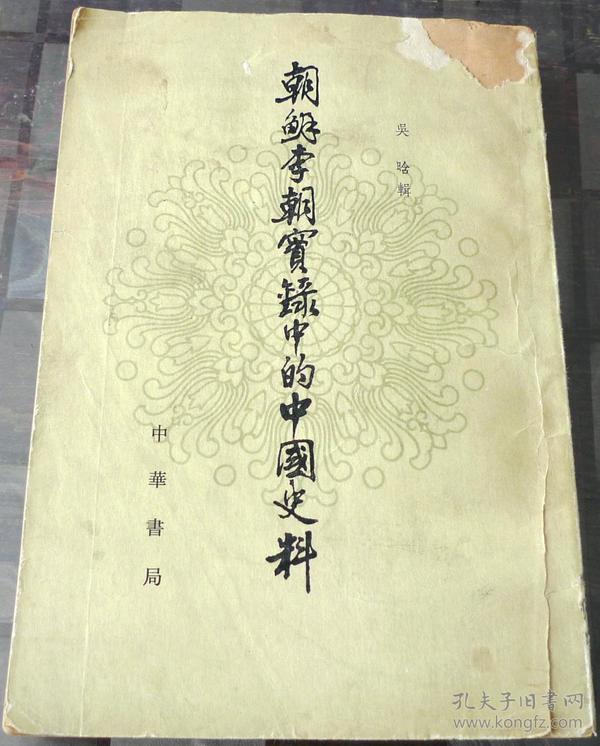 吳晗輯
朝鮮李朝實錄中的中國史料
中華書局
孔夫子旧書网
www.kongfz.com